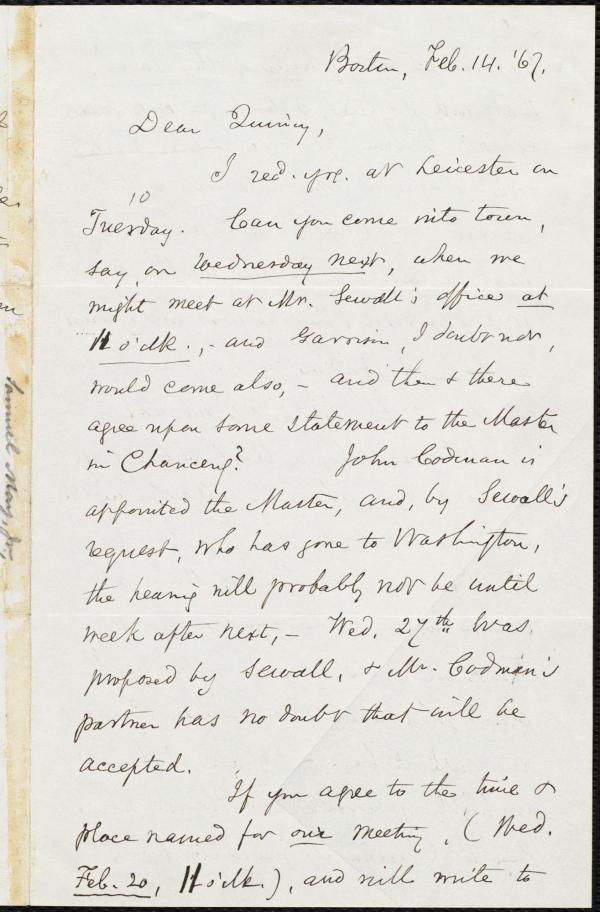 Boston, Feb. 14. '67.
Dear Quincy,
I recd. yrs. at Leicester on
10
Tuesday. Can you come into town,
say, on Wednesday next, when we
might meet at Mr. Sewall's office at
11 o'clk., - and Garrison, I doubt not,
would come also, - and then & there
agree upon some statement to the Master
in Chancery? John Codman is
appointed the Master, and, by Sewall's
request, who has gone to Washington,
the hearing will probably not be until
week after next, - Wed. 27th was
proposed by Sewall, & Mr. Codman's
partner has no doubt that will be
accepted.
If you agree to the time &
place named for our meeting, (Wed.
Feb. 20, 11 o'clk.), and will write to
Samuel May, Jr.